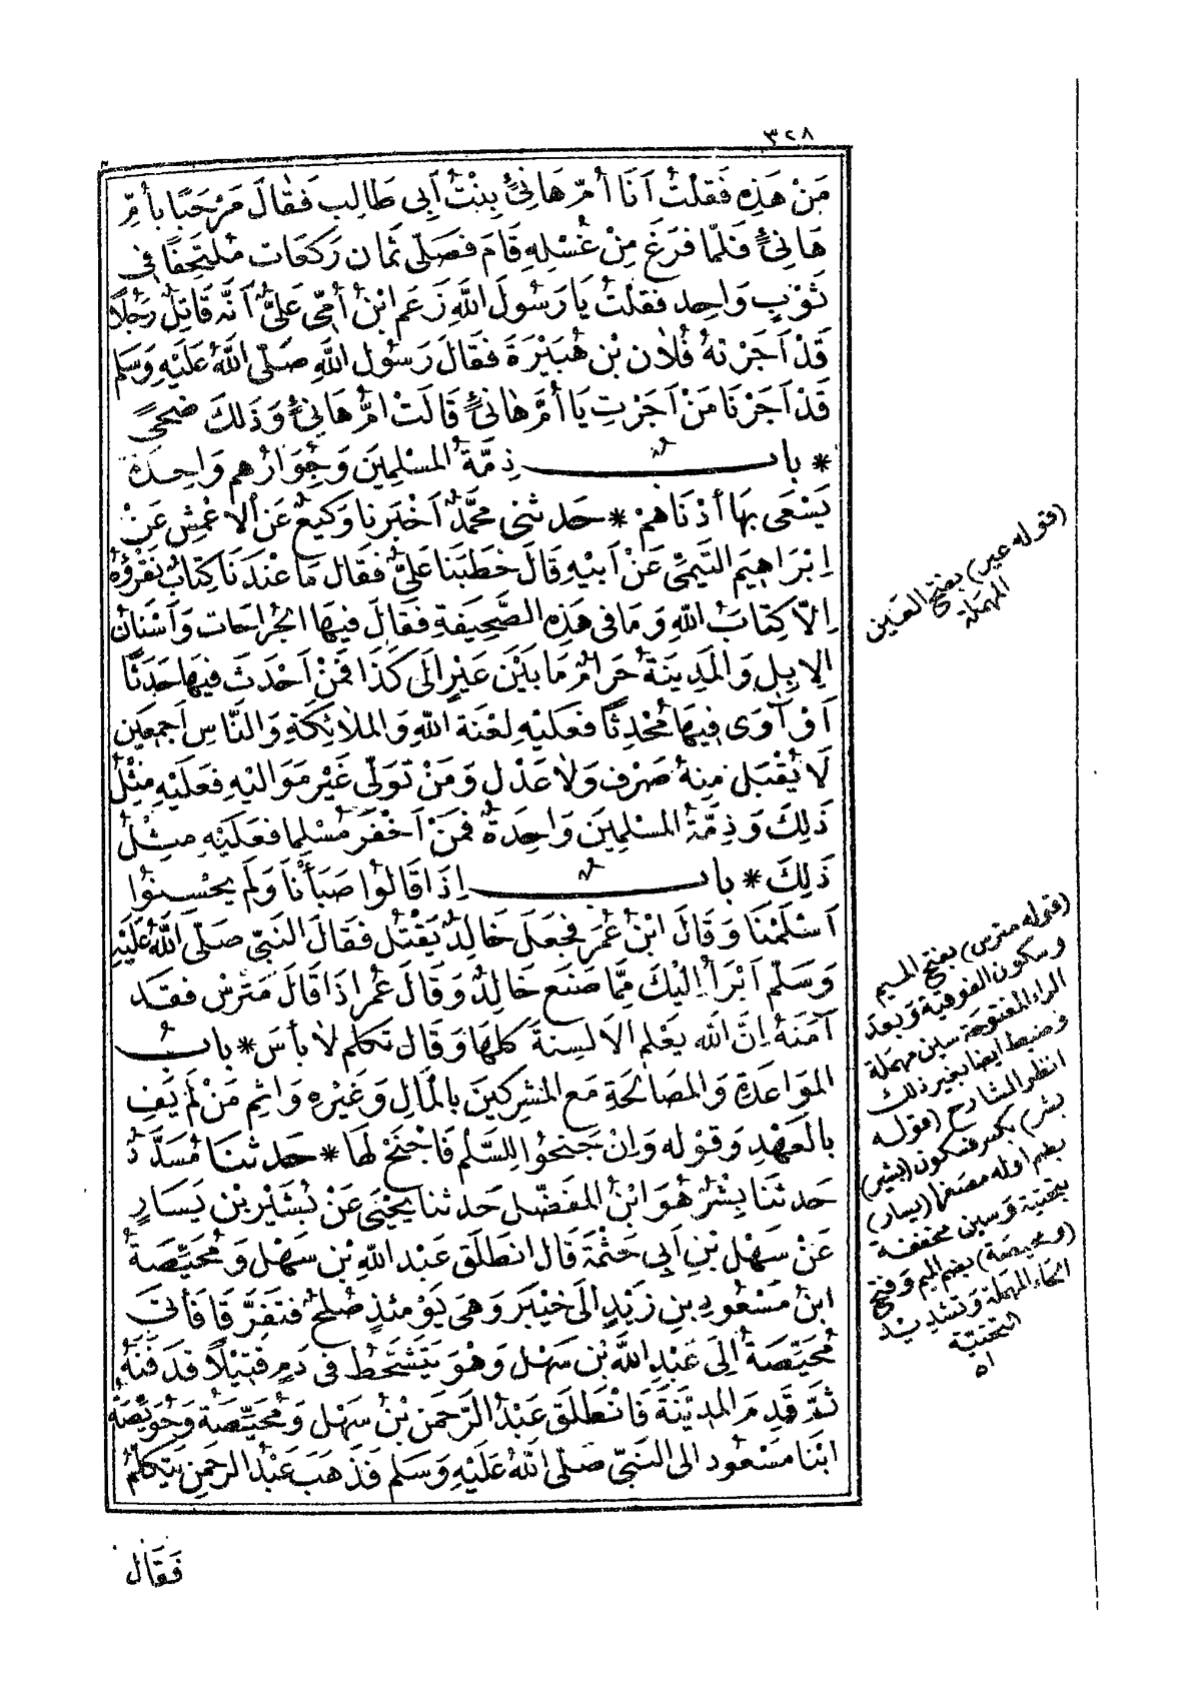 ٣٢٨
مَنْ هَذِهِ فَقُلْتُ أَنَا أُمّ هَانِئٍ بِنْتُ أَبِي طَالِبٍ فَقَالَ مَرْحَبًا بِأُمِّ
هَانِئٍ فَلَمَّا فَرَغَ مِنْ غُسْلِهِ قَامَ فَصَلَّى ثَمَان رَكَعَات مُلْتَحِفًا فِي
ثَوْبٍ وَاحِدٍ فَقُلْتُ يَا رَسُولَ اللَّهِ زَعَمَ ابْنُ أُمِّي عَلِيٌّ أَنَّهُ قَاتِلٌ رَجُلًا
قَدْ أَجَرْتهُ فُلَان بْن هُبَيْرَةَ فَقَالَ رَسُول اللَّهِ صَلَّى اللَّهُ عَلَيْهِ وَسَلم
قَدْ أَجَرْنَا مَنْ أَجَرْتِ يَا أُمَّ هَانِئٍ قَالَتْ أُمُّ هَانِئٍ وَذَلكَ ضُحًى
* باب ذِمَّة المسْلِمِينَ وَجِوَارُهم وَاحِدَة
يَسْعَى بهَا أَدْنَاهمْ * حَدثني محمَّدٌ أَخْبَرنا وَكِيعٌ عَن الأعْمَشِ عَنْ
إبْرَاهِيمَ التَّيْمِيّ عَنْ أَبِيهِ قَالَ خَطَبَنَا عَلِيٌّ فقَال مَا عنْدَنَا كِتَابٌ نَقْرَؤُهُ
إلّا كِتَابُ اللهِ وَمَا في هَذِهِ الصَّحِيفَةِ فقَالَ فِيهَا الجِرَاحَات وَأَسْنَانُ
الإبِلِ وَالمَدِينَة حَرَامٌ مَا بَيْنَ عَيْرٍ إلَى كَذَا فَمَنْ أَحْدَثَ فِيهَا حَدَثًا
أَوْ آوَى فِيهَا مُحْدِثًا فعَلَيْهِ لعْنَة اللهِ وَالملَائِكَةِ وَالنَّاسِ أجمعِين
لَا يُقْبَل منِهُ صَرْف وَلَا عَدْل وَمَنْ تَوَلَّى غَيْر مَوَاليهِ فَعَلَيْهِ مِثْلُ
ذَلِكَ وَذِمَّةُ المسْلِمِينَ وَاحِدَةٌ فمَنْ أَخْفَرَ مُسْلِما فعَلَيْهِ مِثْلُ
ذَلِكَ * باب إذَا قَالوُا صَبَأْنَا وَلَم يحْسِنوُا
أَسْلَمْنَا وَقَالَ ابْنُ عُمَرَ فجَعَلَ خَالِدٌ يَقْتُل فَقَالَ النَّبِيّ صَلَّى اللَّهُ عَلَيْهِ
وَسَلّم أَبْرَأُ إلَيْكَ مِمَّا صَنَعَ خَالِدٌ وَقَالَ عُمَر إذَا قَالَ مَتَرْسْ فقَد
آمَنَهُ إنَّ الله يَعْلم الأَلسِنَةَ كلهَا وَقَال تَكلم لَا بَأسَ * بابُ
المُوَاعَدَةِ وَالمصَالحَةِ مَعَ المُشْرِكينَ بالمَالِ وَغَيْرِهِ وَإثم مَنْ لَم يَفِ
بالعَهْدِ وَقوْله وَإنْ جَنَحُوا للسَّلْمِ فَاجْنَحْ لَهَا * حَدثنَا مُسَدَّدٌ
حَدثنَا بِشْرٌ هُوَ ابْنُ المفَضَّل حَدثنا يَحْيَى عَنْ بُشَيْرِ بْن يَسَارٍ
عَنْ سَهْل بْنِ أَبِي حَثْمَةَ قَال انطَلَقَ عَبْد اللهِ بْن سَهْل وَمُحَيِّصَةُ
ابنُ مَسْعُودِ بنِ زَيْدٍ إلَى خيْبَر وَهيَ يَوْمئذٍ صُلحٌ فتَفَرَّقَا فَأتَى
مُحَيِّصَةُ إلَى عَبْدِ اللَّهِ بْن سَهْل وَهوَ يَتَشَحَّطُ في دَمٍ قَتِيْلًا فدَفَنَهُ
ثمَّ قَدِمَ المَدِيْنَةَ فَانْطَلَقَ عَبْدُ الرَّحمَنِ بْنُ سَهْل وَمُحَيِّصَة وَحُوَيِّصَة
ابْنَا مَسْعُود إلى النَّبِيّ صَلّى اللهُ عَلَيْهِ وَسَلم فذَهَبَ عَبْدُ الرحمَنِ يَتَكَلَّمُ
فَقَال
(قوله عير) بفتح العَين
المهمَلة
(قوله مترس) بفتح الميم
وسكون الفوقية وَبعد
الراء المفتوحَة سين مهملة
وضبط أيضا بغير ذلك
انظر الشارح (قوله
بشر) بكسر فسكون (بشير)
بضم أوله مصغرا (يسار)
بتحتية وَسين مخففة
(ومحيصَة) بضم الميم وَفتح
الحَاء المهملة وَتشديد
التحتيّة
اه